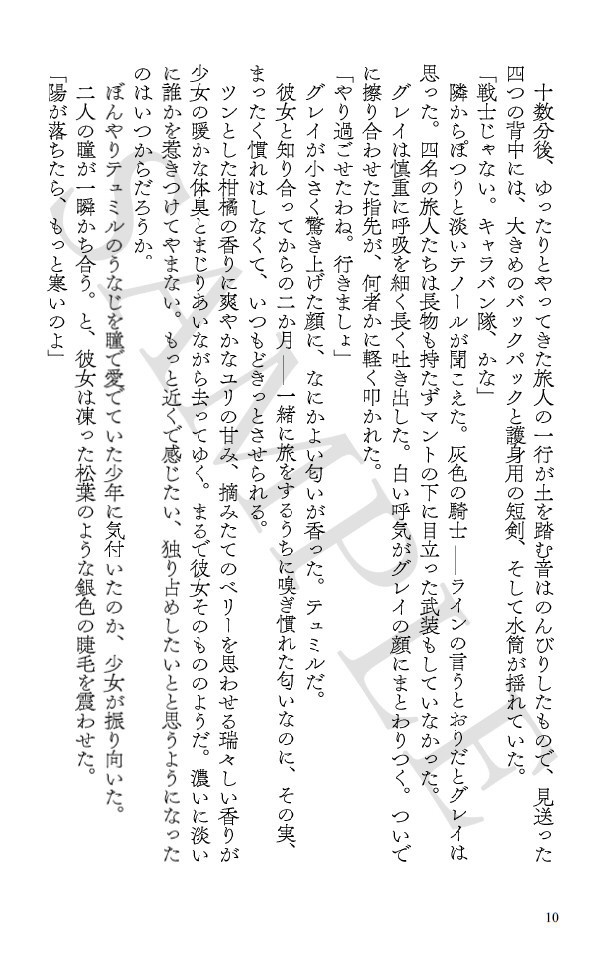 十数分後、ゆったりとやってきた旅人の一行が土を踏む音はのんびりしたもので、見送った
四つの背中には、大きめのバックパックと護身用の短剣、そして水筒が揺れていた。
「戦士じゃない。キャラバン隊、かな」
隣からぽつりと淡いテノールが聞こえた。灰色の騎士――ラインの言うとおりだとグレイは
思った。四名の旅人たちは長物も持たずマントの下に目立った武装もしていなかった。
グレイは慎重に呼吸を細く長く吐き出した。白い呼気がグレイの顔にまとわりつく。ついで
に擦り合わせた指先が、何者かに軽く叩かれた。
「やり過ごせたわね。行きましょ」
グレイが小さく驚き上げた顔に、なにかよい匂いが香った。テュミルだ。
彼女と知り合ってからの二か月――一緒に旅をするうちに嗅ぎ慣れた匂いなのに、その実、
まったく慣れはしなくて、いつもどきっとさせられる。
ツンとした柑橘の香りに爽やかなユリの甘み、摘みたてのベリーを思わせる瑞々しい香りが
少女の暖かな体臭とまじりあいながら去ってゆく。まるで彼女そのもののようだ。濃いに淡い
に誰かを惹きつけてやまない。もっと近くで感じたい、独り占めしたいとと思うようになった
のはいつからだろうか。
ぼんやりテュミルのうなじを瞳で愛でていた少年に気付いたのか、少女が振り向いた。
二人の瞳が一瞬かち合う。と、彼女は凍った松葉のような銀色の睫毛を震わせた。
「陽が落ちたら、もっと寒いのよ」
SAMPLE
10